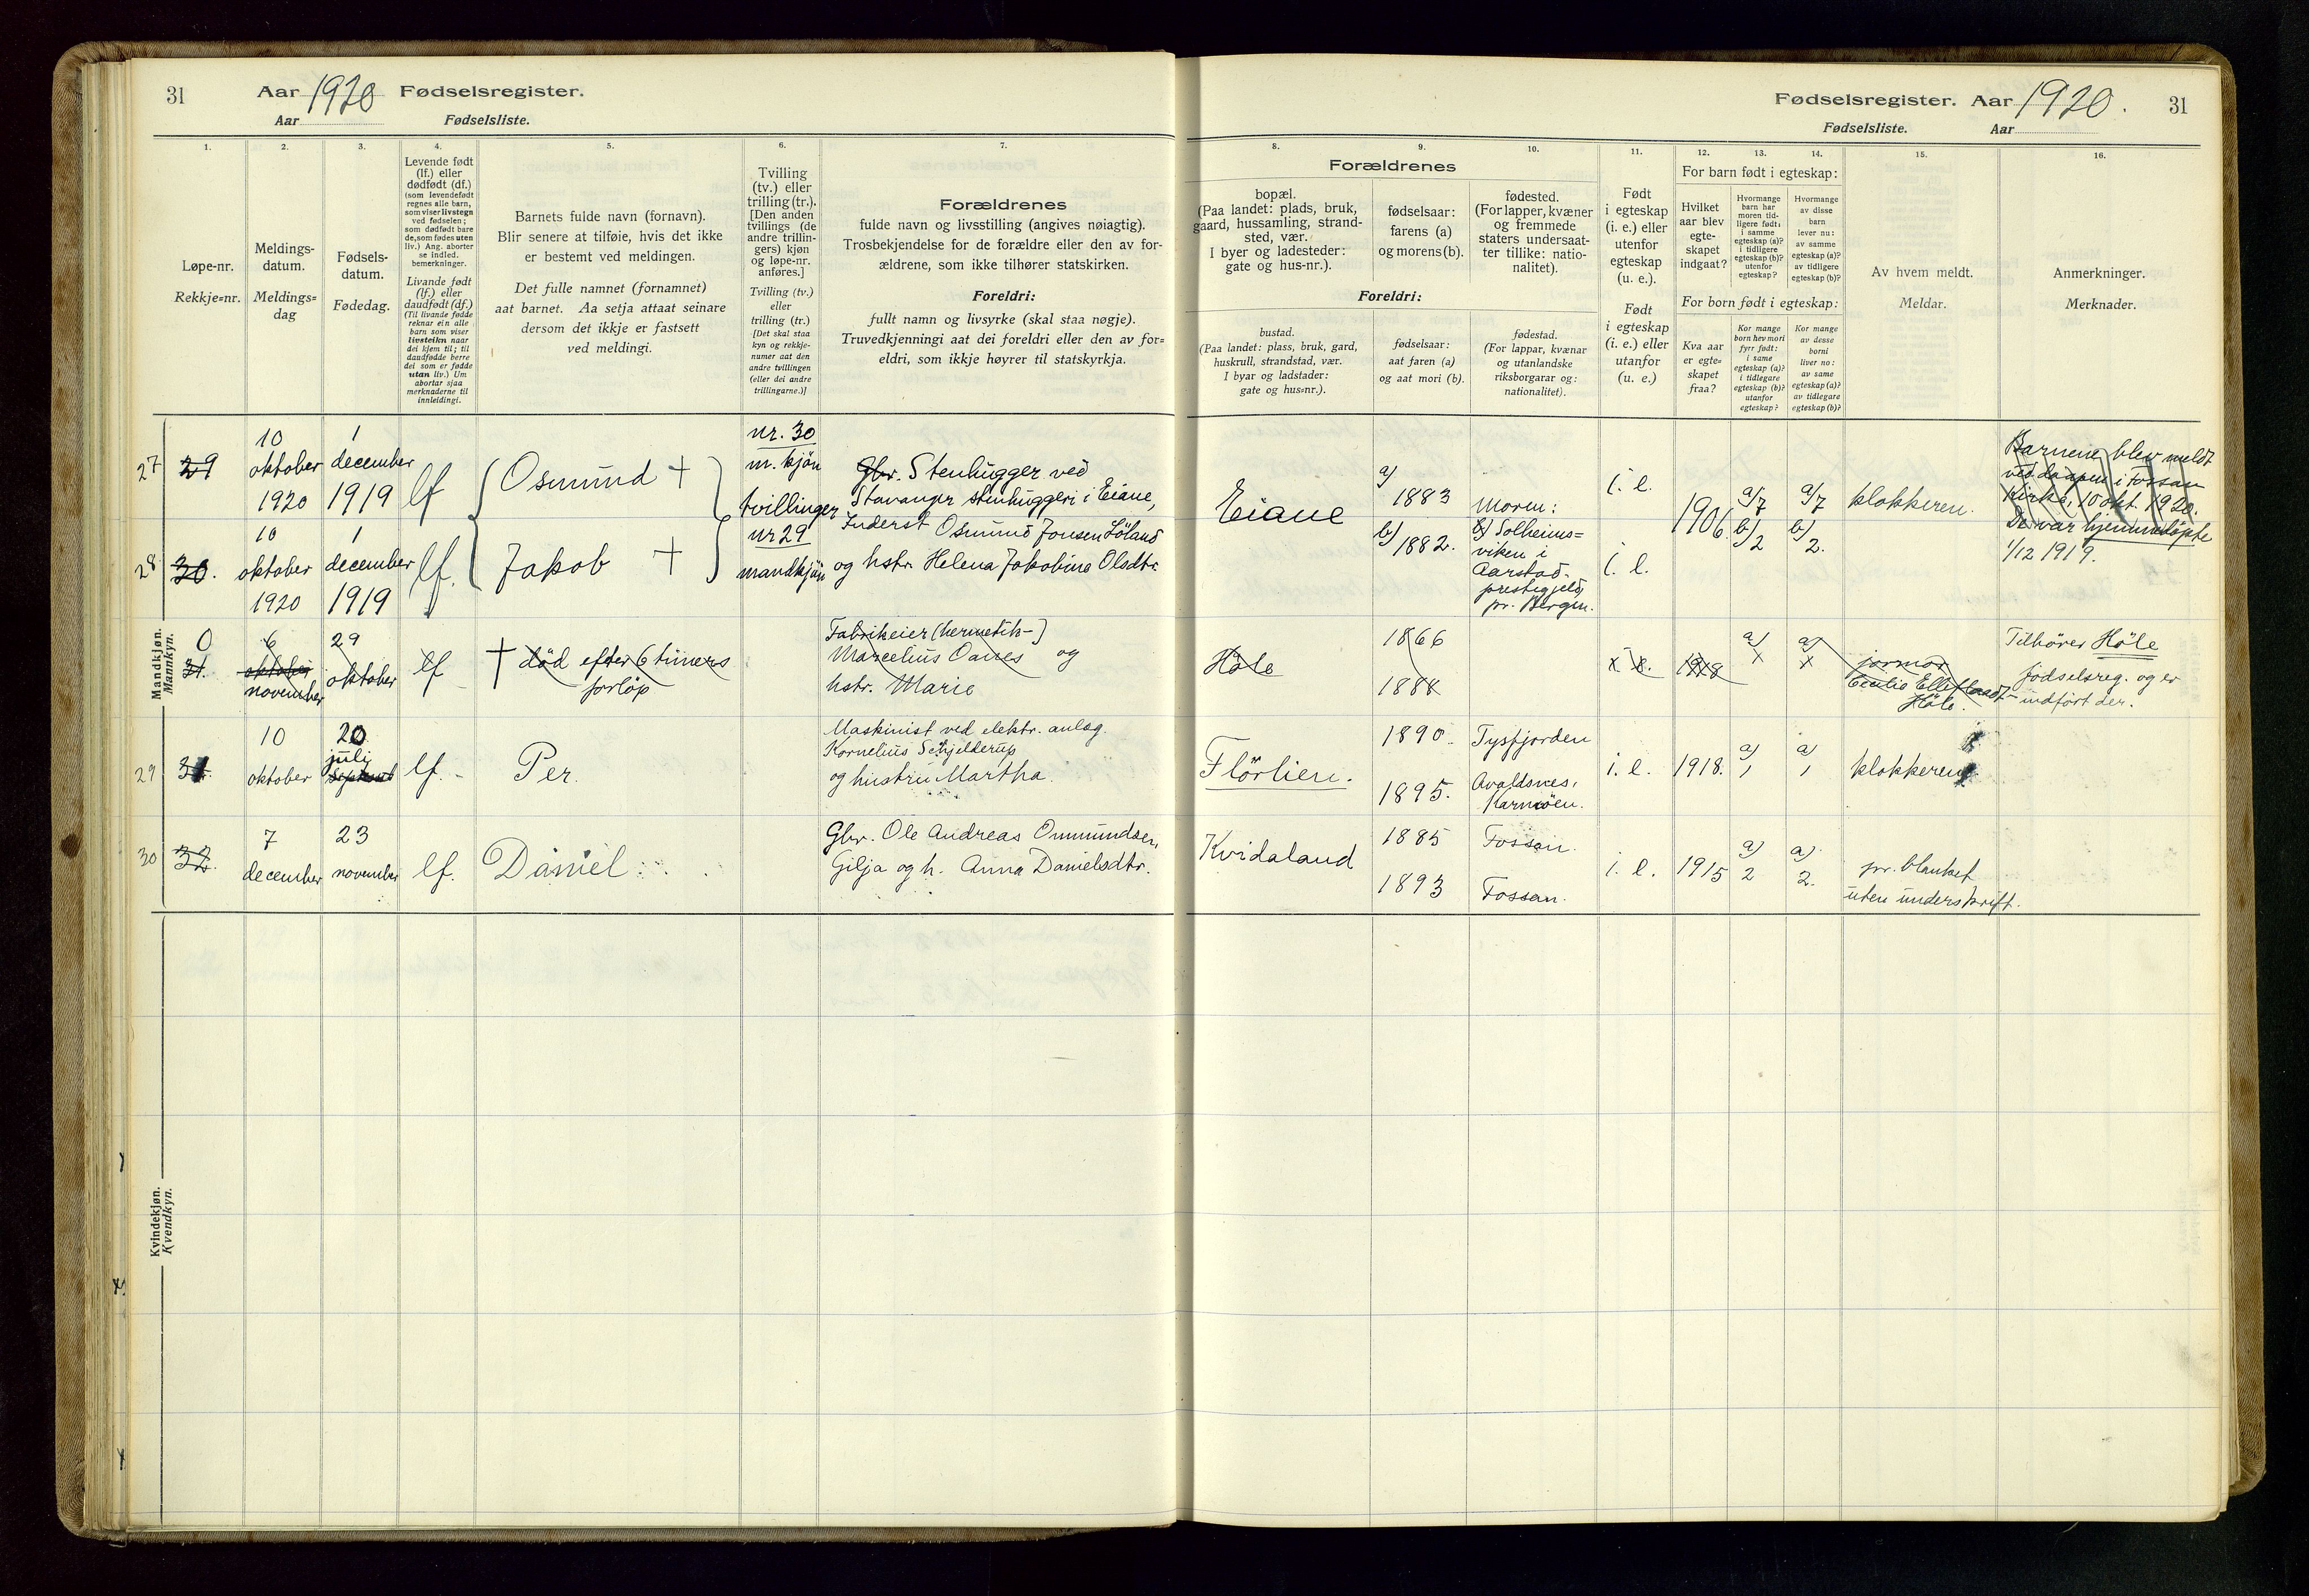 31
Aar 1920 Fødselsregister.
Aar
Fødselsliste.
1.
Løpe-nr.
Rekkje=nr.
2.
Meldings-
datum.
Meldings=
dag
3.
Fødsels-
datum.
Fødedag.
4.
Levende født
(lf.) eller
dødfødt (df.)
(som levendefødt
regnes alle barn,
som viser livstegn
ved fødselen;
som dødfødt bare
de, som fødes uten
liv.) Ang. aborter
se indled.
bemerkninger.
Livande født
(lf.) eller
daudfødt (df.)
(Til livande fødde
reknar ein alle
barn som viser
livsteikn naar
dei kjem til; til
daudfødde berre
dei som er fødde
utan liv.) Um
abortar sjaa
merknaderne til
innleidingi.
5.
Barnets fulde navn (fornavn).
Blir senere at tilføie, hvis det ikke
er bestemt ved meldingen.
Det fulle namnet (fornamnet)
aat barnet. Aa setja attaat seinare
dersom det ikkje er fastsett
ved meldingi.
6.
Tvilling
(tv.) eller
trilling (tr.).
[Den anden
tvillings (de
andre trillin-
gers) kjøn
og løpe-nr.
anføres.]
Tvilling (tv.)
eller
trilling (tr.)
[Det skal staa
kyn og rekkje-
numer aat den
andre tvillingen
(eller dei andre
trillingarne.)]
7.
Forældrenes
fulde navn og livsstilling (angives nøiagtig).
Trosbekjendelse for de forældre eller den av for-
ældrene, som ikke tilhører statskirken.
Foreldri:
fullt namn og livsyrke (skal staa nøgje).
Truvedkjenningi aat dei foreldri eller den av for=
eldri, som ikkje høyrer til statskyrkja.
Mandkjøn.
Mannkyn.
27 29
10
oktober
1920
1
december
1919
lf
Osmund †
nr. 30
m. kjön
tvillinger
Gbr. Stenhugger ved
Stavanger stenhuggeri i Eiane,
Inderst Osmund Jonsen Löland
og hstr. Helena Jakobine Olsdtr.
28 30.
10
oktober
1920
1
december
1919
lf.
Jakob †
nr 29
mandkjön
0
31.
6
oktober
november
29
oktober
lf
† död efter 6 timers
forlöp
Fabrikeier (hermetik-)
Marcelius Oanes og
hstr. Marie
29
10
oktober
20
juli
lf.
Per.
Maskinist ved elektr. anlæg.
Kornelius Schjelderup
og hustru Martha.
30 32.
7
december
23
november
lf.
Daniel
Gbr. Ole Andreas Ommundsen,
Gilja og h. Anna Danielsdtr.
Kvindekjøn.
Kvendkyn.
Fødselsregister. Aar 1920. 31
Fødselsliste. Aar
8.
Forældrenes
bopæl.
(Paa landet: plads, bruk,
gaard, hussamling, strand-
sted, vær.
I byer og ladesteder:
gate og hus-nr.).
9.
fødselsaar:
farens (a)
og morens (b).
10.
fødested.
(For lapper, kvæner
og fremmede
staters undersaat-
ter tillike: natio-
nalitet).
Foreldri:
bustad.
(Paa landet: plass, bruk, gard,
huskrull, strandstad, vær.
I byar og ladstader:
gate og hus=nr.).
fødselsaar:
aat faren (a)
og aat mori (b).
fødestad.
(For lappar, kvænar
og utanlandske
riksborgarar og:
nationalitet).
11.
Født
i egteskap
(i. e.) eller
utenfor
egteskap
(u. e.).
Født
i egteskap
(i. e.) eller
utanfor
(u. e.)
12.
For barn født i egteskap:
Hvilket
aar blev
egte-
skapet
indgaat?
13.
Hvormange
barn har
moren tid-
ligere født:
i samme
egteskap (a)?
i tidligere
egteskap (b)?
utenfor
egteskap?
14.
Hvormange
av disse
barn
lever nu:
av samme
egteskap (a)?
av tidligere
egteskap (b)?
For born født i egteskap:
Kva aar
er egte=
skapet
fraa?
Kor mange
born hev mori
fyrr født:
i same
egteskap (a)?
i tidlegare
egteskap (b)?
utanfor
egteskap?
Kor mange
av desse
borni
liver no:
av same
egteskap (a)?
av tidlegare
egteskap (b)?
15.
Av hvem meldt.
Meldar.
16.
Anmerkninger.
Merknader.
Eiane
a) 1883
b) 1882.
Moren:
b) Solheims=
viken i
Aarstad
prestegjeld,
pr. Bergen.
i. e.
i. e.
1906.
a) 7
b) 2
a) 7
b) 2.
klokkeren.
Barnene blev meldt
ved daapen i Fossan
kirke, 10 okt. 1920.
De var hjemmedöpte
1/12 1919.
Höle
1866
1888
i. e.
1918
a) x
a) x
jormor
Cecilie
Höle.
Tilhörer Höle
födselsreg. og er
indfört der.
Flörlien.
1890.
1895.
Tysfjorden
Avaldsnes,
Karmöen.
i. e.
1918.
a) 1
a) 1
klokkeren
Kvidaland
1885
1893
Fossan.
Fossan.
i. e.
1915
a) 2
a) 2.
pr. blanket
uten underskrift.